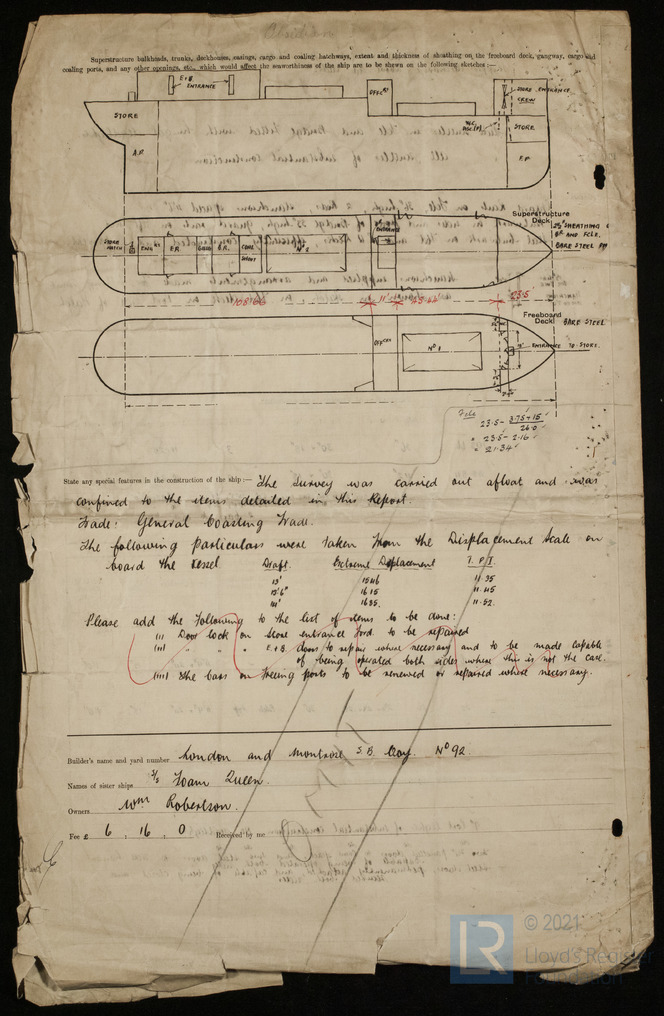 Superstructure bulkheads, trunks, deckhouses, casings, cargo and coaling hatchways, extent and thickness of sheathing on the freeboard deck, gangway, cargo and
coaling ports, and any other openings, etc., which would affect the seaworthiness of the ship are to be shown on the following sketches :—
E & B
ENTRANCE
STORE ENTRANCE
CREW
STORE
STORE
A.P.
F.P.
Superstructure
Deck
2½" SHEATHING
BR AND FCLE.
BARE STEEL
STORE
HATCH
ENTRANCE
E.R.
B.R.
COAL
SHOOT
Nº 2
108.66
11'
23.5
Freeboard
Deck
BARE STEEL
Nº 1
ENTRANCE TO STORE.
Fcle
23.5 - 3.75 + 15
26.0
= 23.5 - 2.16
= 21.34
State any special features in the construction of the ship :— The survey was carried out afloat and was
confined to the items detailed in this Report.
Trade: General Coasting Trade.
The following particulars were taken from the Displacement Scale on
board the vessel
Draft. Extreme Displacement T. P. I.
13' 1546 11.35
13'6" 1615 11.45
14' 1685. 11.52.
Please add the following to the list of items to be done:
(1) Door lock on store entrance Ford. to be repaired
(11) " " " E & B. doors to repair where necessary and to be made capable
of being operated both sides where this is not the case.
(111) The bars on freeing ports to be renewed or repaired where necessary.
Builder's name and yard number London and Montrose S.B. Coy. Nº 92.
Names of sister ships S/S Foam Queen.
Owners Wm Robertson.
Fee £ 6 : 16 , 0 Received by me
LR
© 2021
Lloyd's Register
Foundation